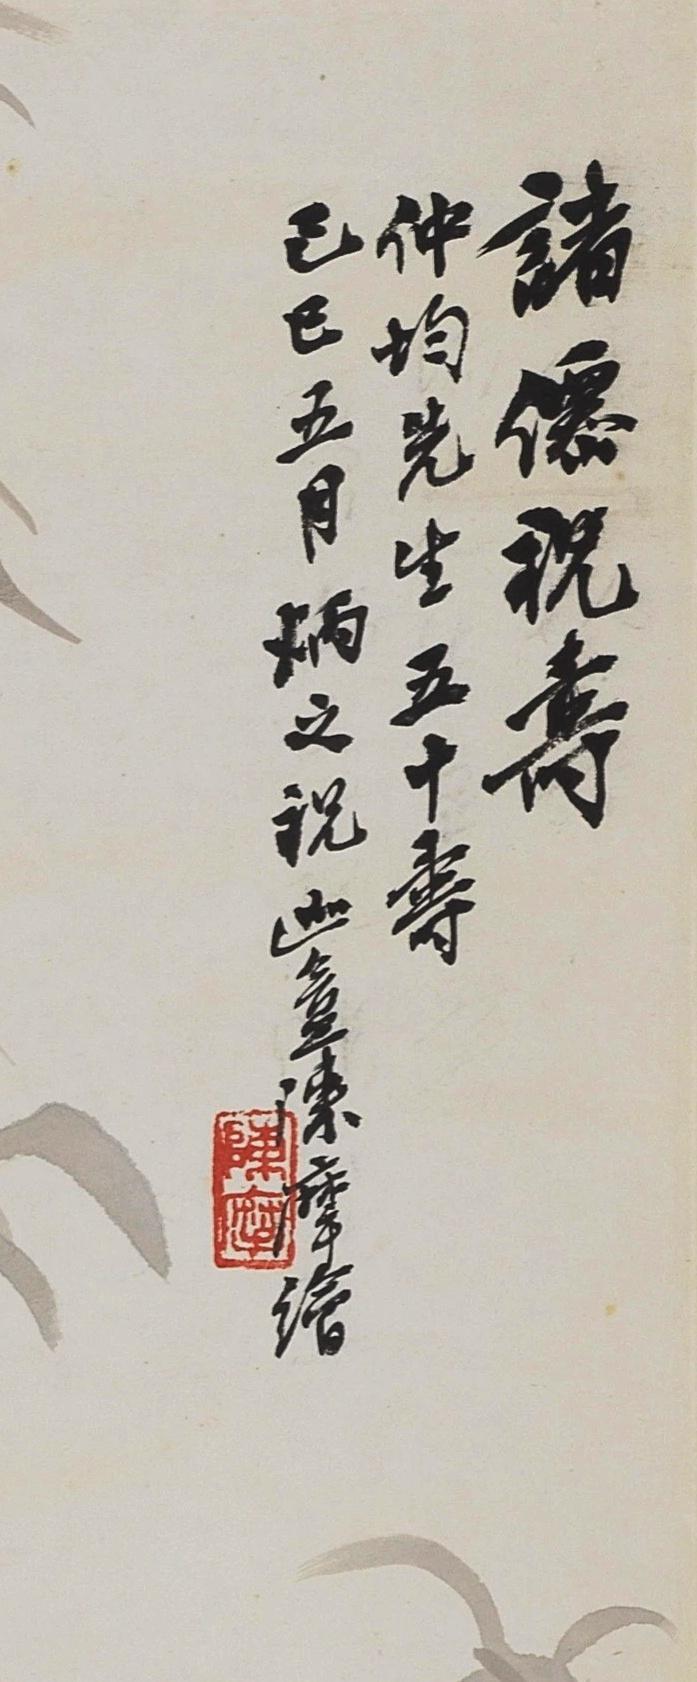 諸僊祝壽
仲均先生五十壽
己巳五月炳之祝 迦盦陳摩繪
陳摩